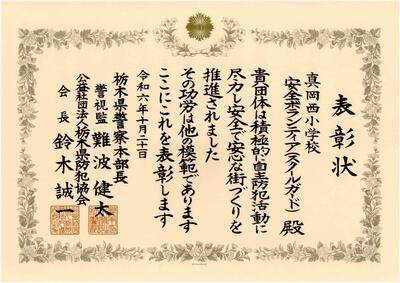 表彰状
真岡西小学校
安全ボランティア(スクールガード) 殿
貴団体は積極的に自主防犯活動に
尽力し安全で安心な街づくりを
推進されました
その功労は他の模範であります
ここにこれを表彰します
令和六年十月二十日
栃木県警察本部長
警視監 難波健太
公益社団法人栃木県防犯協会
会長 鈴木誠一